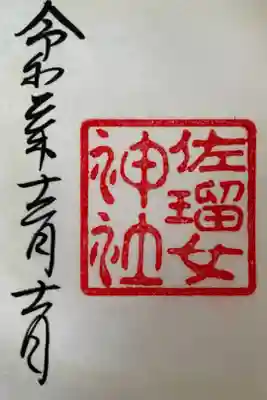 令和二年十二月十一日
佐瑠女
神社